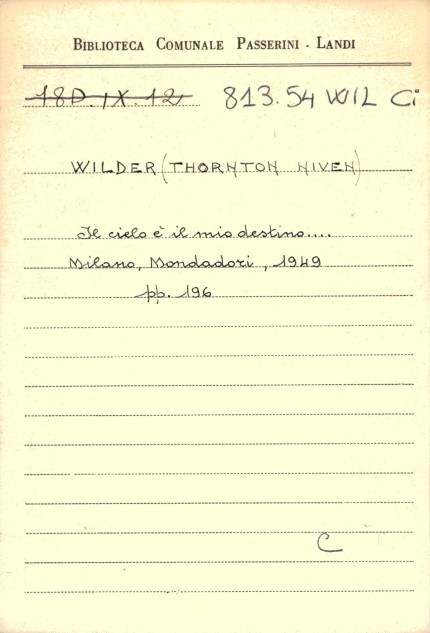 BIBLIOTECA COMUNALE PASSERINI - LANDI
18D.IX.12 813.54 WIL Ci
WILDER (THORNTON NIVEN)
Il cielo è il mio destino....
Milano, Mondadori, 1949
pp. 196
C